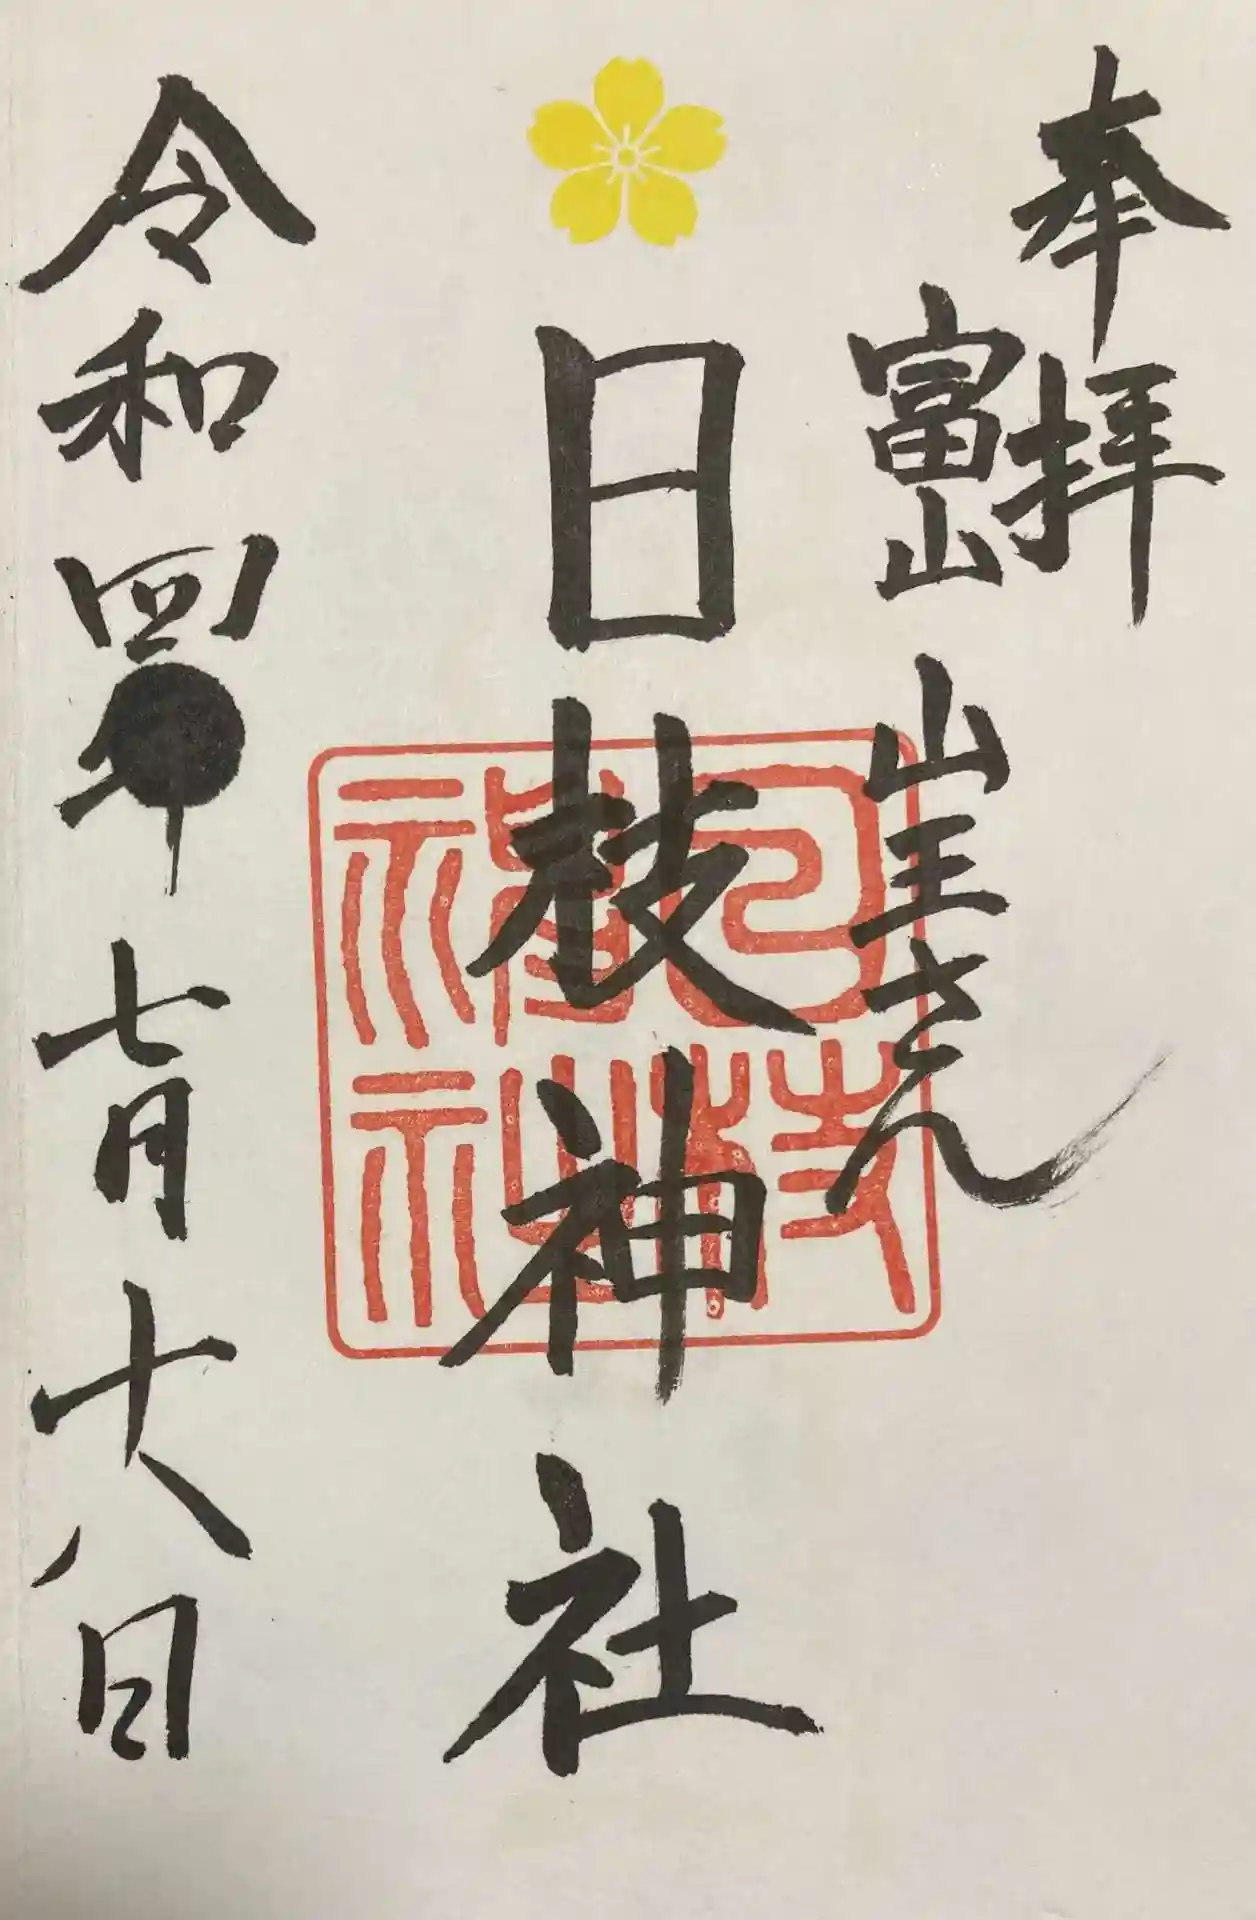 奉拝
富山 山王さん
日枝神社
日枝神社
令和四年 七月十八日